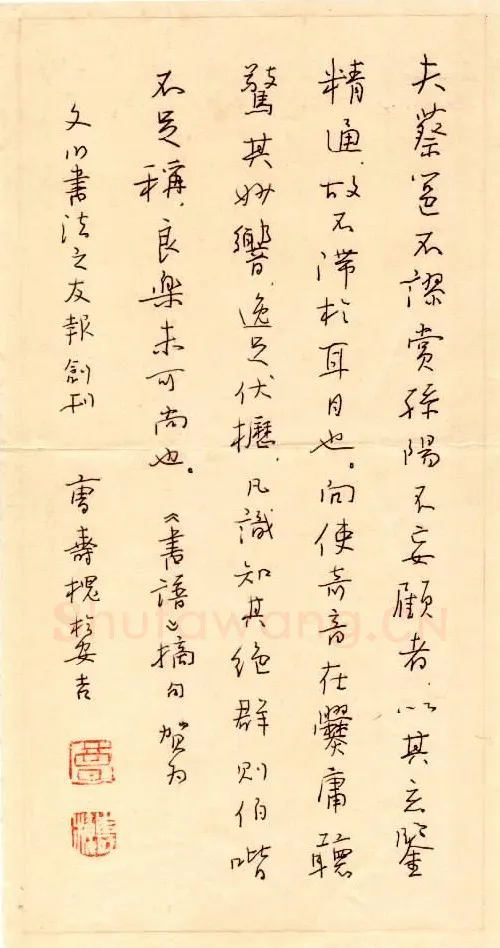 夫蔡邕不謬賞孫陽不妄顧者，以其玄鑒
精通，故不滯於耳目也。向使奇音在爨庸聽
驚其妙響，逸足伏櫪，凡識知其絕群則伯喈
不足稱，良樂未可尚也。《書譜》摘句 賀为
文書法之友報創刊 曹壽槐於安吉
Shufawang.CN